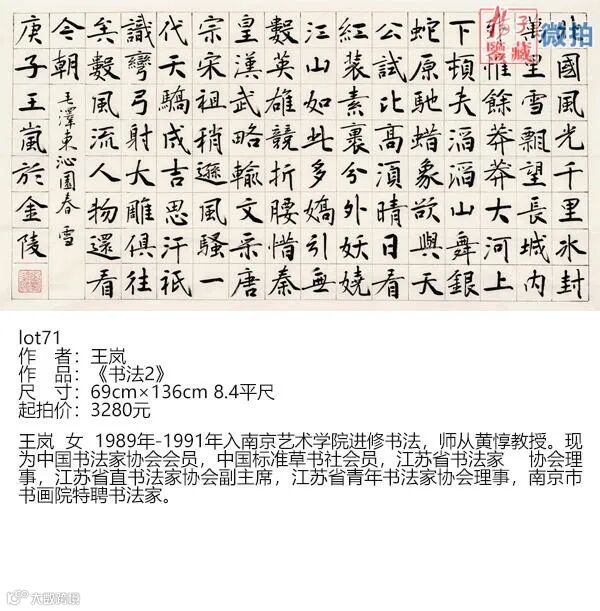 北國風光千里氷封
萬里雪飄望長城内
惟餘莽莽大河上
下頓失滔滔山舞銀
蛇原馳蜡象欲與天
公試比高須晴日看
紅裝素裹分外妖嬈
江山如此多嬌引無
數英雄競折腰惜秦
皇漢武略輸文采唐
宗宋祖稍遜風騷一
代天驕成吉思汗祇
識彎弓射大雕俱往
矣數風流人物還看
今朝
毛澤東沁園春 雪
庚子王嵐於金陵
子
鑒藏
微拍
lot71
作 者：王岚
作 品：《书法2》
尺 寸：69cm×136cm 8.4平尺
起拍价：3280元
王岚 女 1989年-1991年入南京艺术学院进修书法，师从黄惇教授。现
为中国书法家协会会员，中国标准草书社会员，江苏省书法家 协会理
事，江苏省直书法家协会副主席，江苏省青年书法家协会理事，南京市
书画院特聘书法家。
大数跨境